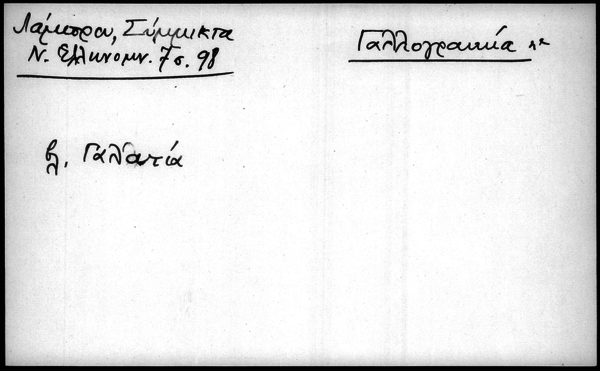 Λάμπρου, Σύμμικτα
Ν. Ελληνομν. 7 σ. 98
Γαλλογραικία
βλ. Γαλατία